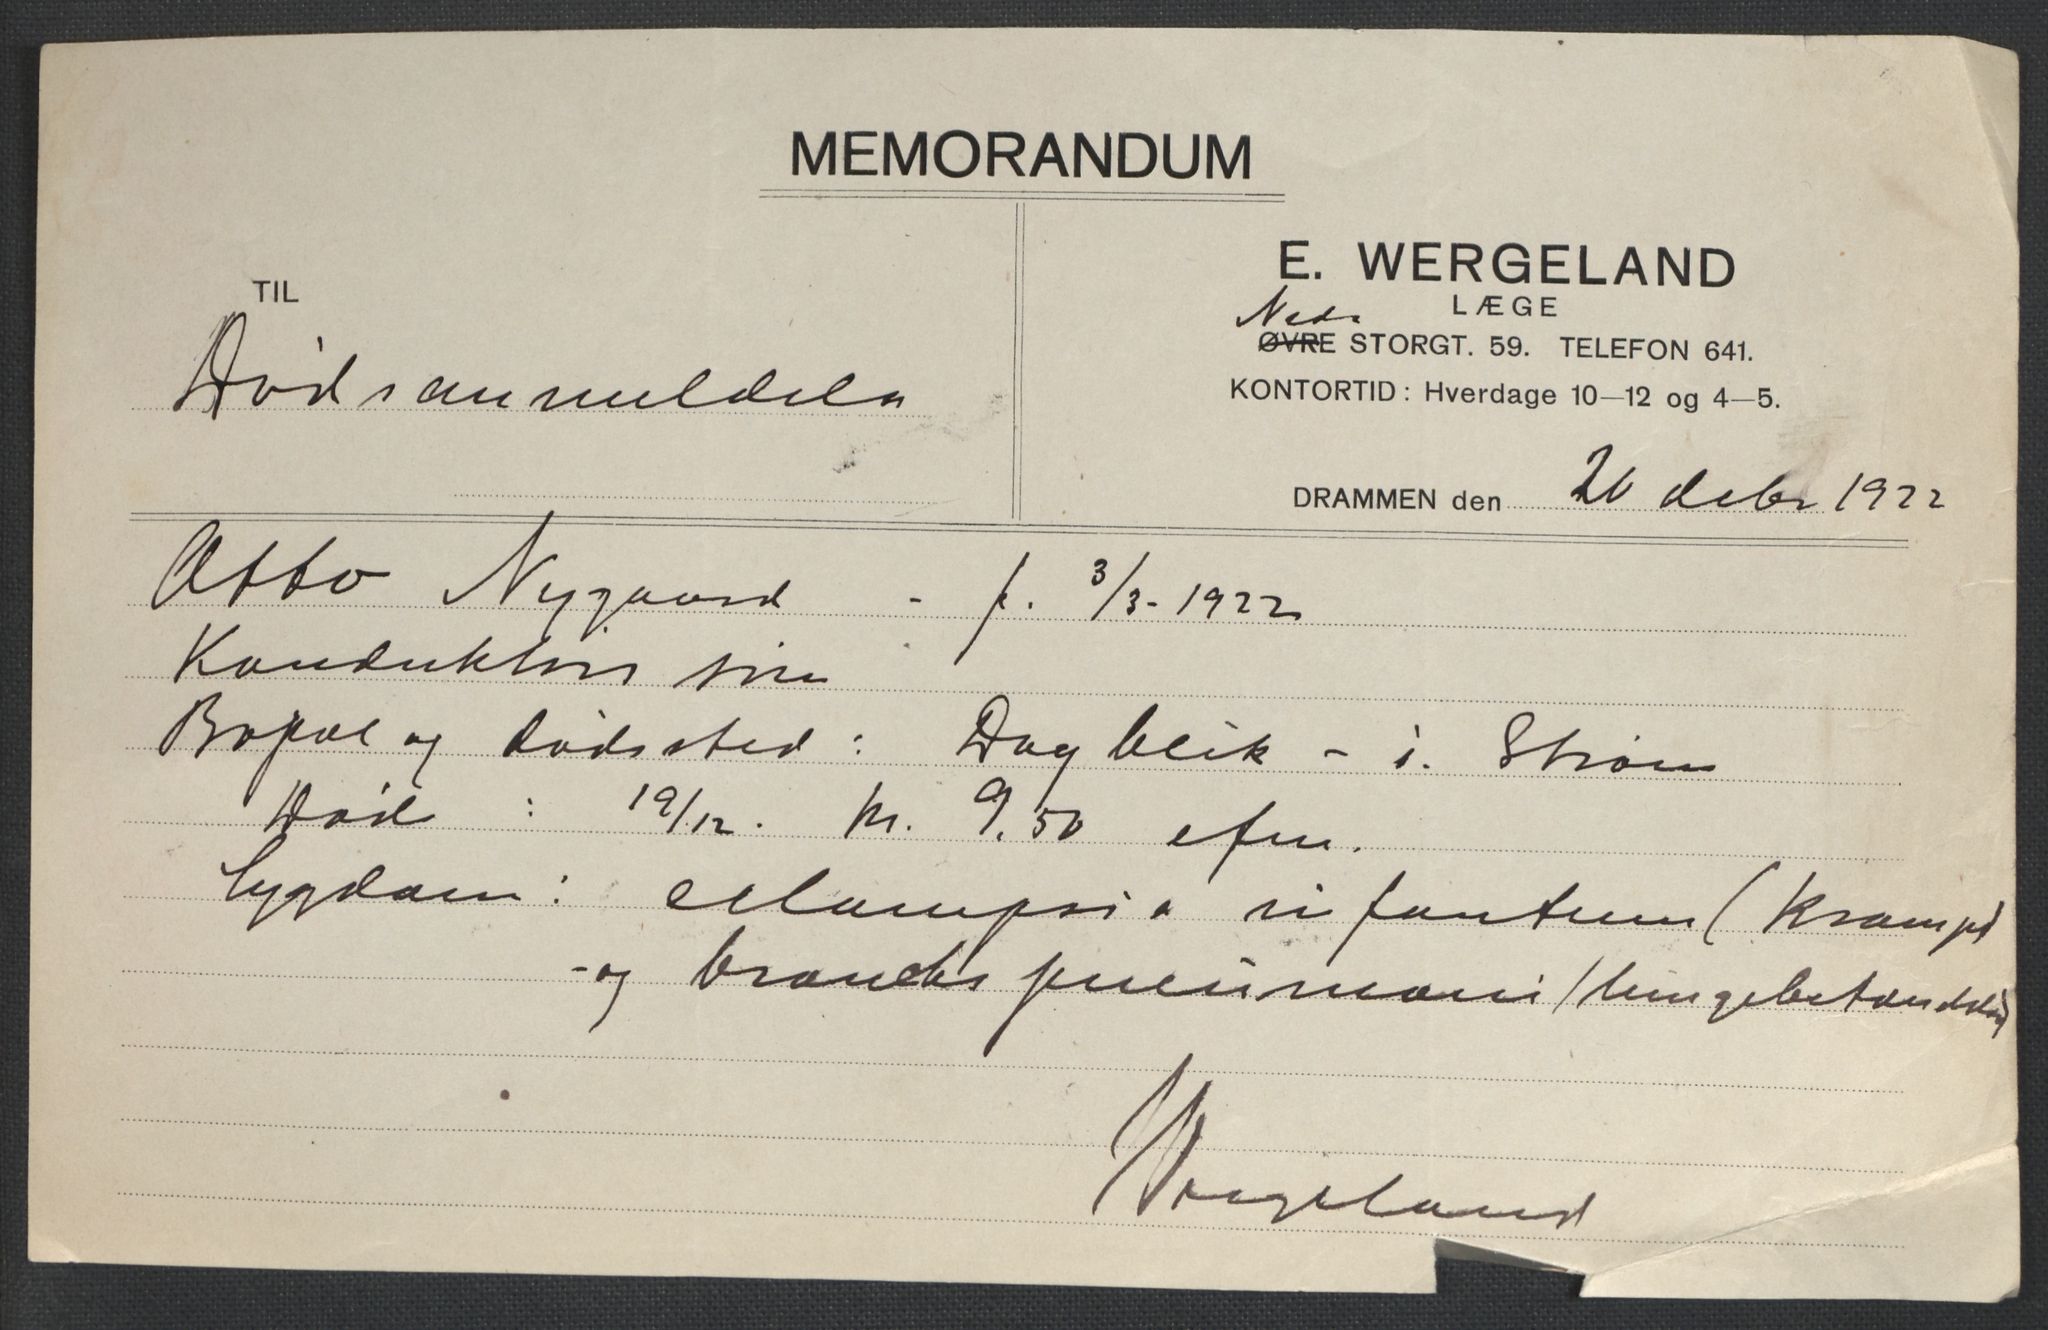 MEMORANDUM
E. WERGELAND
LÆGE
TIL
Nedr
ØVRE STORGT. 59. TELEFON 641.
Dødsanmeldelse
KONTORTID: Hverdage 10—12 og 4—5.
DRAMMEN den 20 debr 1922
Otto Nygaard - f. 3/3-1922
Konduktørs søn
Bopæl og dødssted: Dagbleik - i. Strøm
Død : 19/12. kl. 9.50 efm.
Sygdom: eclampsia infantum (krampe)
- og bronchopneumoni (lungebetændelse)
Wergeland